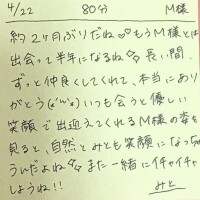 4/22 80分 M様
約2ヶ月ぶりだね♡もうM様とは
出会って半年になるね♡♡長い間、
ずっと仲良くしてくれて、本当にあり
がとう(*'ω'*)いつも会うと優しい
笑顔で出迎えてくれるM様の姿を
見ると、自然とみとも笑顔になっちゃ
うんだよね♡♡また一緒にイチャイチャ
しようね!!
みと